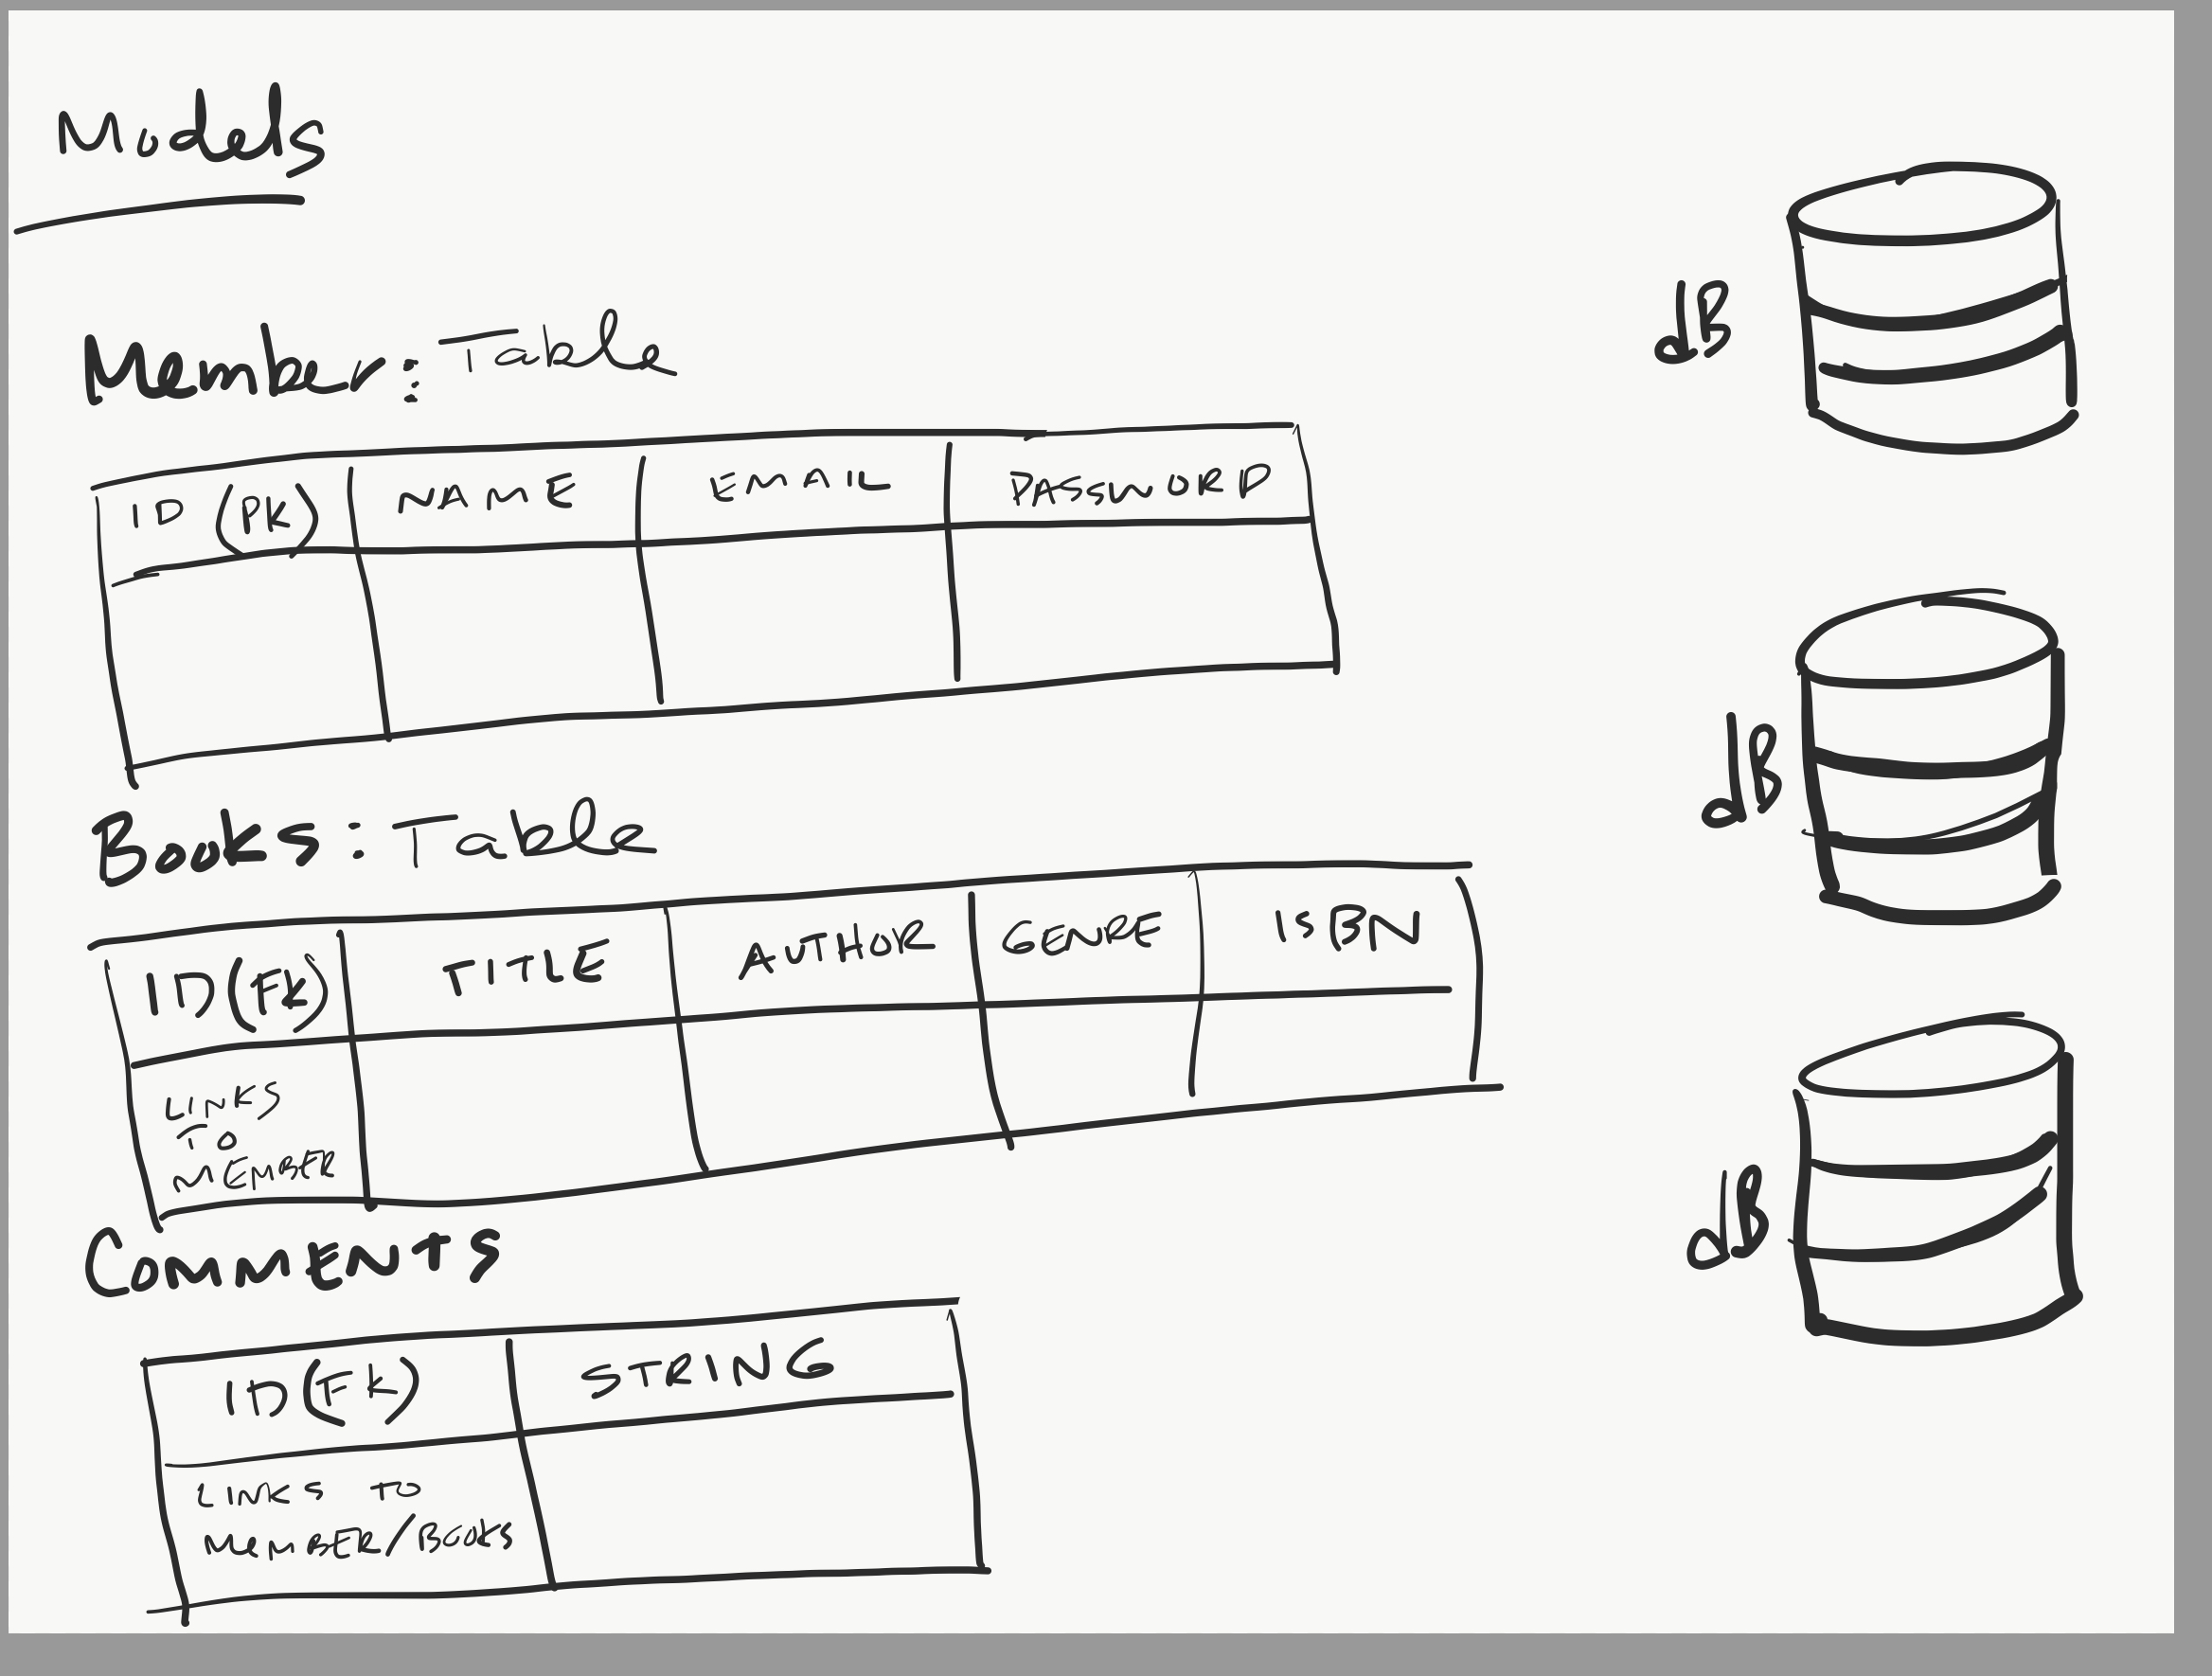 Models
Member: Table
ID (PK) NAME EMAIL PASSWORD
Books: Table
ID (FK) TITLE AUTHOR GENRE ISBN
LINKS
TO
MEMBER
COMMENTS
ID (FK) STRING
LINKS TO
MEMBER/Books
dB
dB
dB